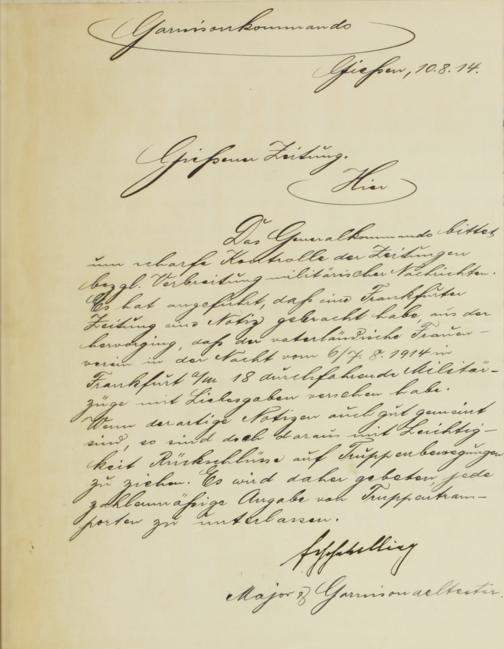 Garnisonkommando
Gießen, 10.8.14.
Gießener Zeitung.
Hier
Das Generalkommando bittet
um scharfe Kontrolle der Zeitungen
bezgl. Verbreitung militärischer Nachrichten.
Es hat angeführt, daß eine Frankfurter
Zeitung eine Notiz gebracht habe, aus der
hervorging, daß der vaterländische Frauen-
verein in der Nacht vom 6/7. 8. 1914 in
Frankfurt a/M 18 durchfahrende Militär-
züge mit Liebesgaben versehen habe.
Wenn derartige Notizen auch gut gemeint
sind, so sind doch daraus mit Leichtig-
keit Rückschlüsse auf Truppenbewegungen
zu ziehen. Es wird daher gebeten, jede
zahlenmäßige Angabe von Truppentrans-
porten zu unterlassen.
Major & Garnisonältester.